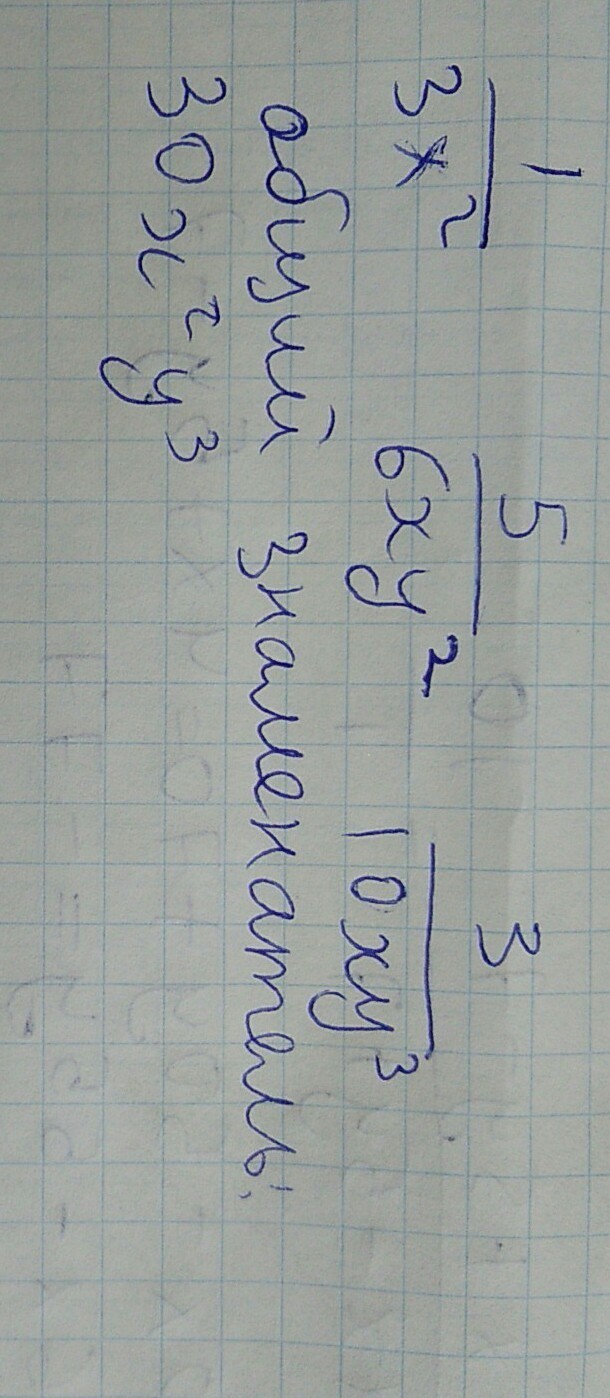 1 5 3
3x² 6xy² 10xy³
общий знаменатель:
30x²y³